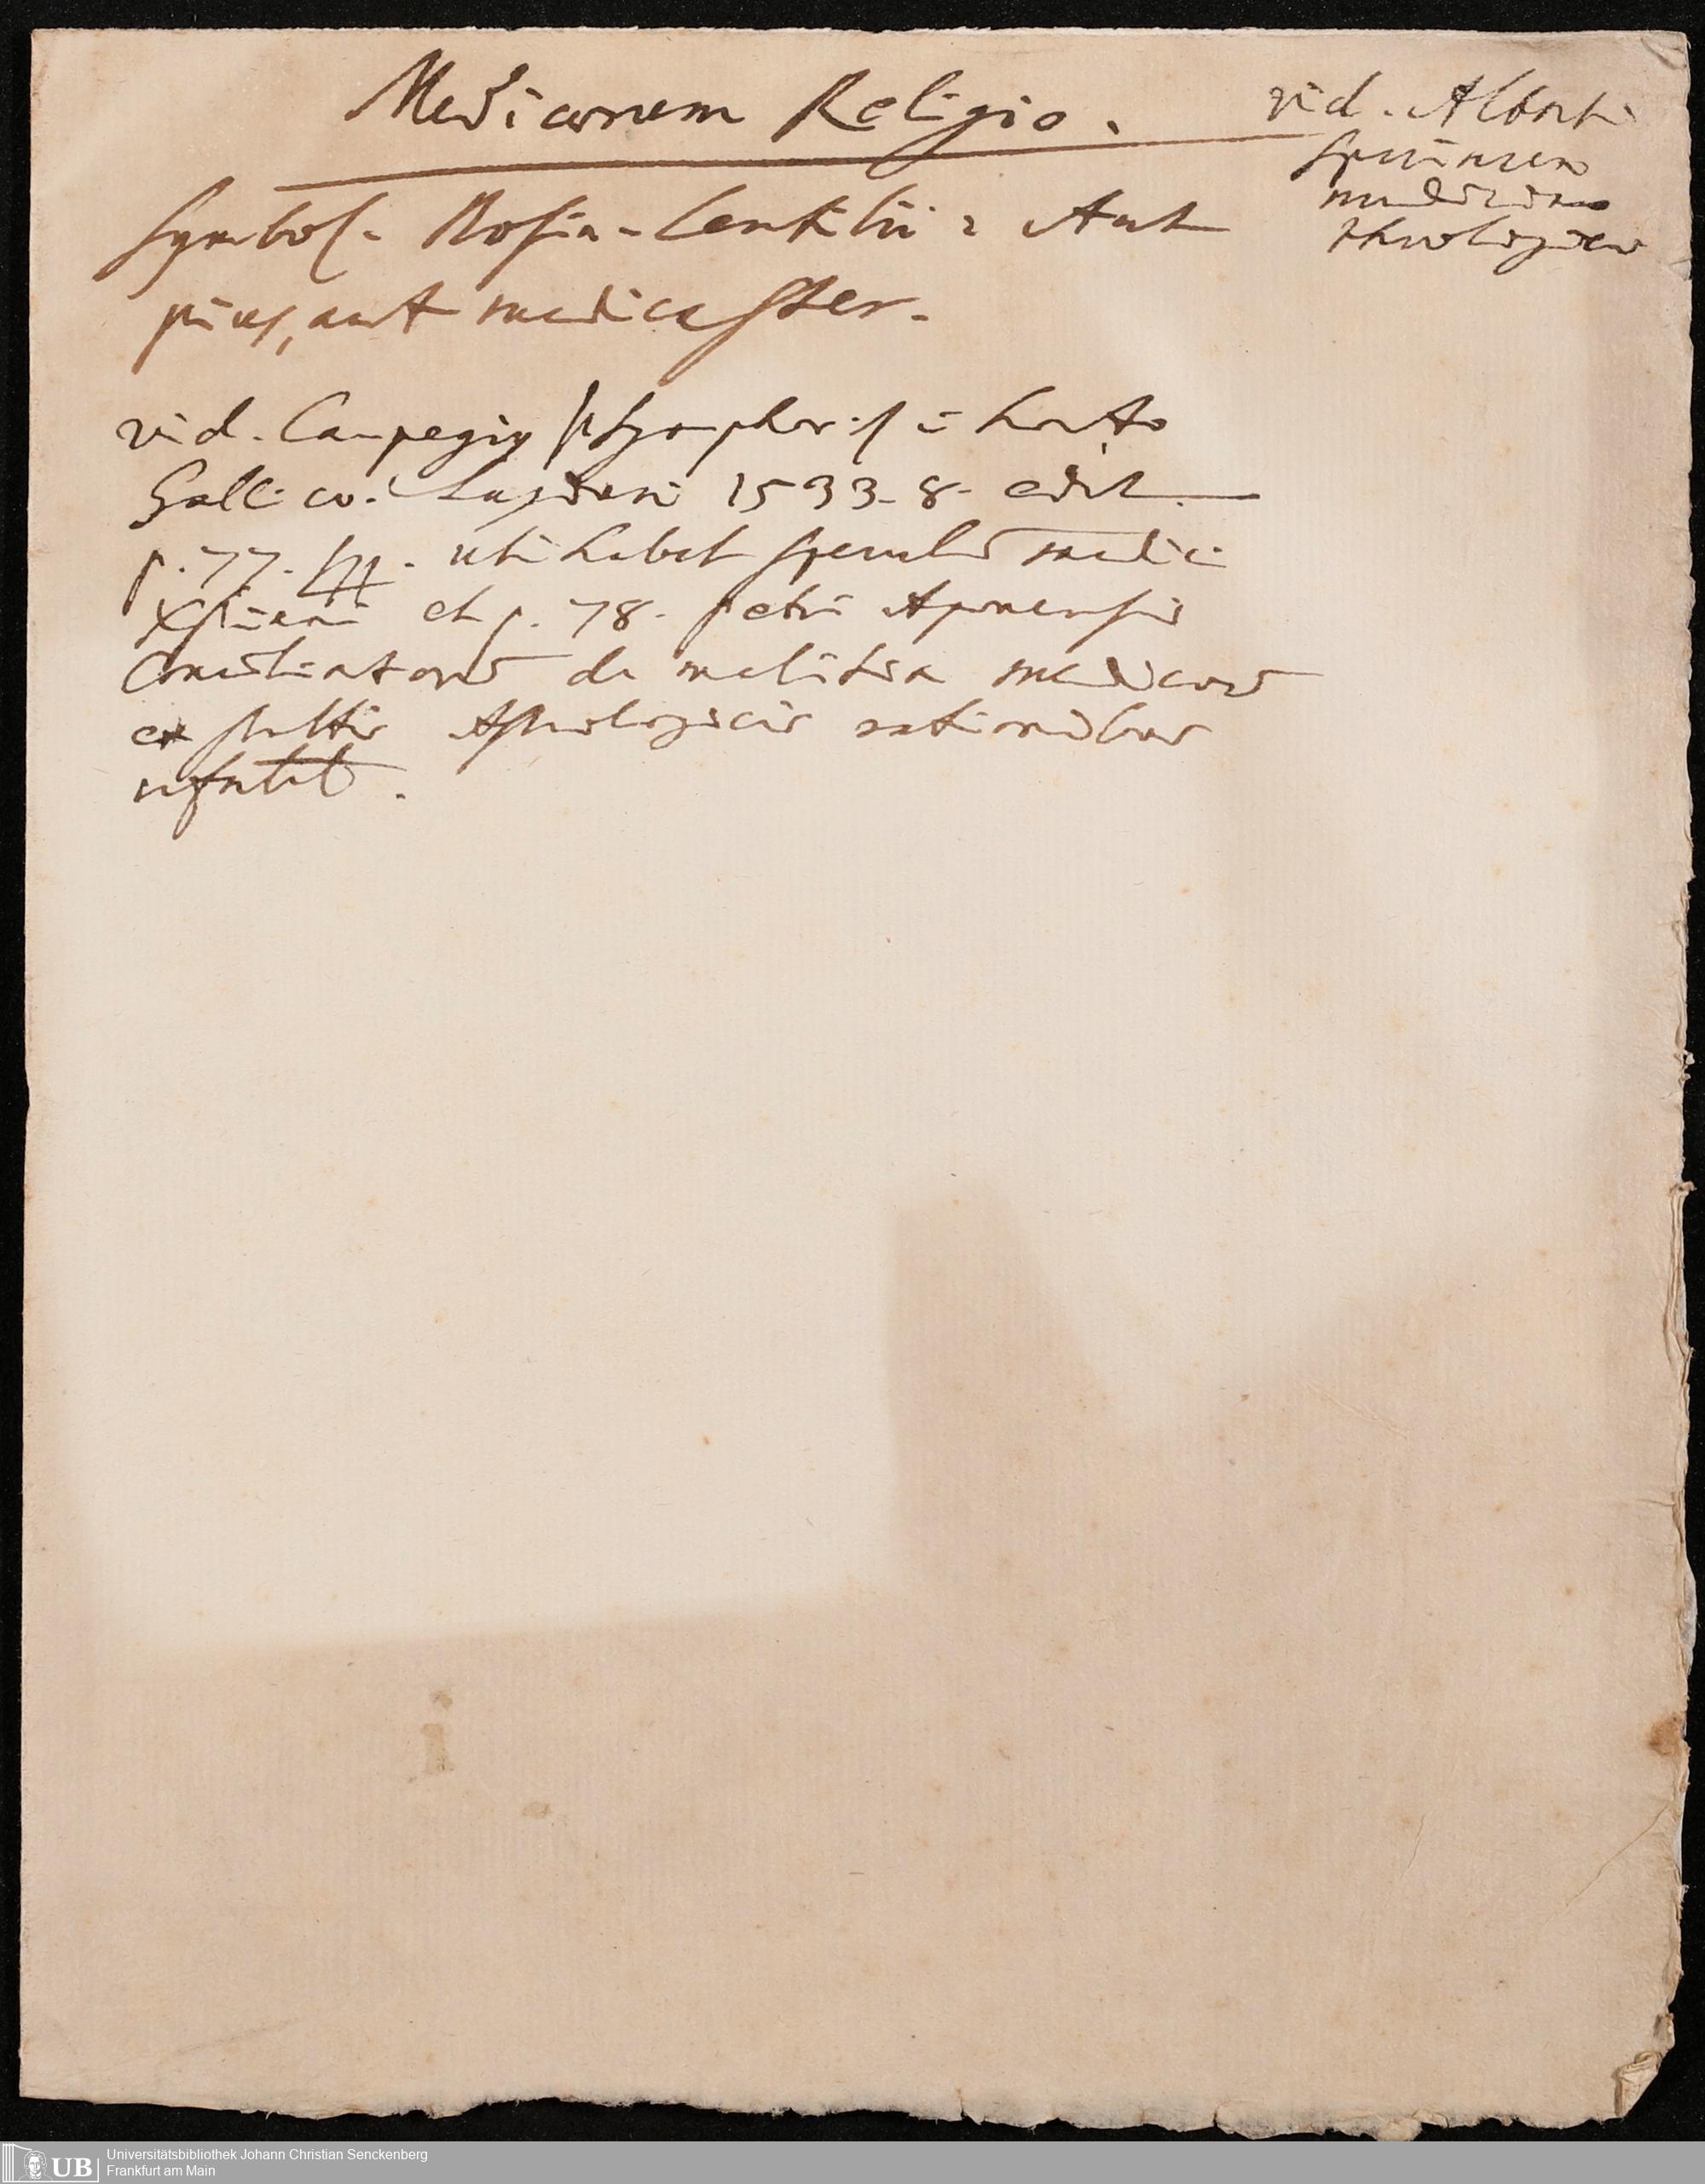 Medicorum Religio.
vid. Alberti
specimen
medicinae
theologicae
Symbol. Rosin. Lentilii: Aut
pius, aut medicaster.
vid. Campegiu Symphor. in horto
Gallico. Lugduni 1533. 8. edit.
p. 77. sqq. ubi habet speculu medici
Xstiani et p. 78. petri Aponensis
Conciliatoris de malitia medicoru
ex stultis Astrologicis rationibus
refutat.
Universitätsbibliothek Johann Christian Senckenberg
Frankfurt am Main
UB